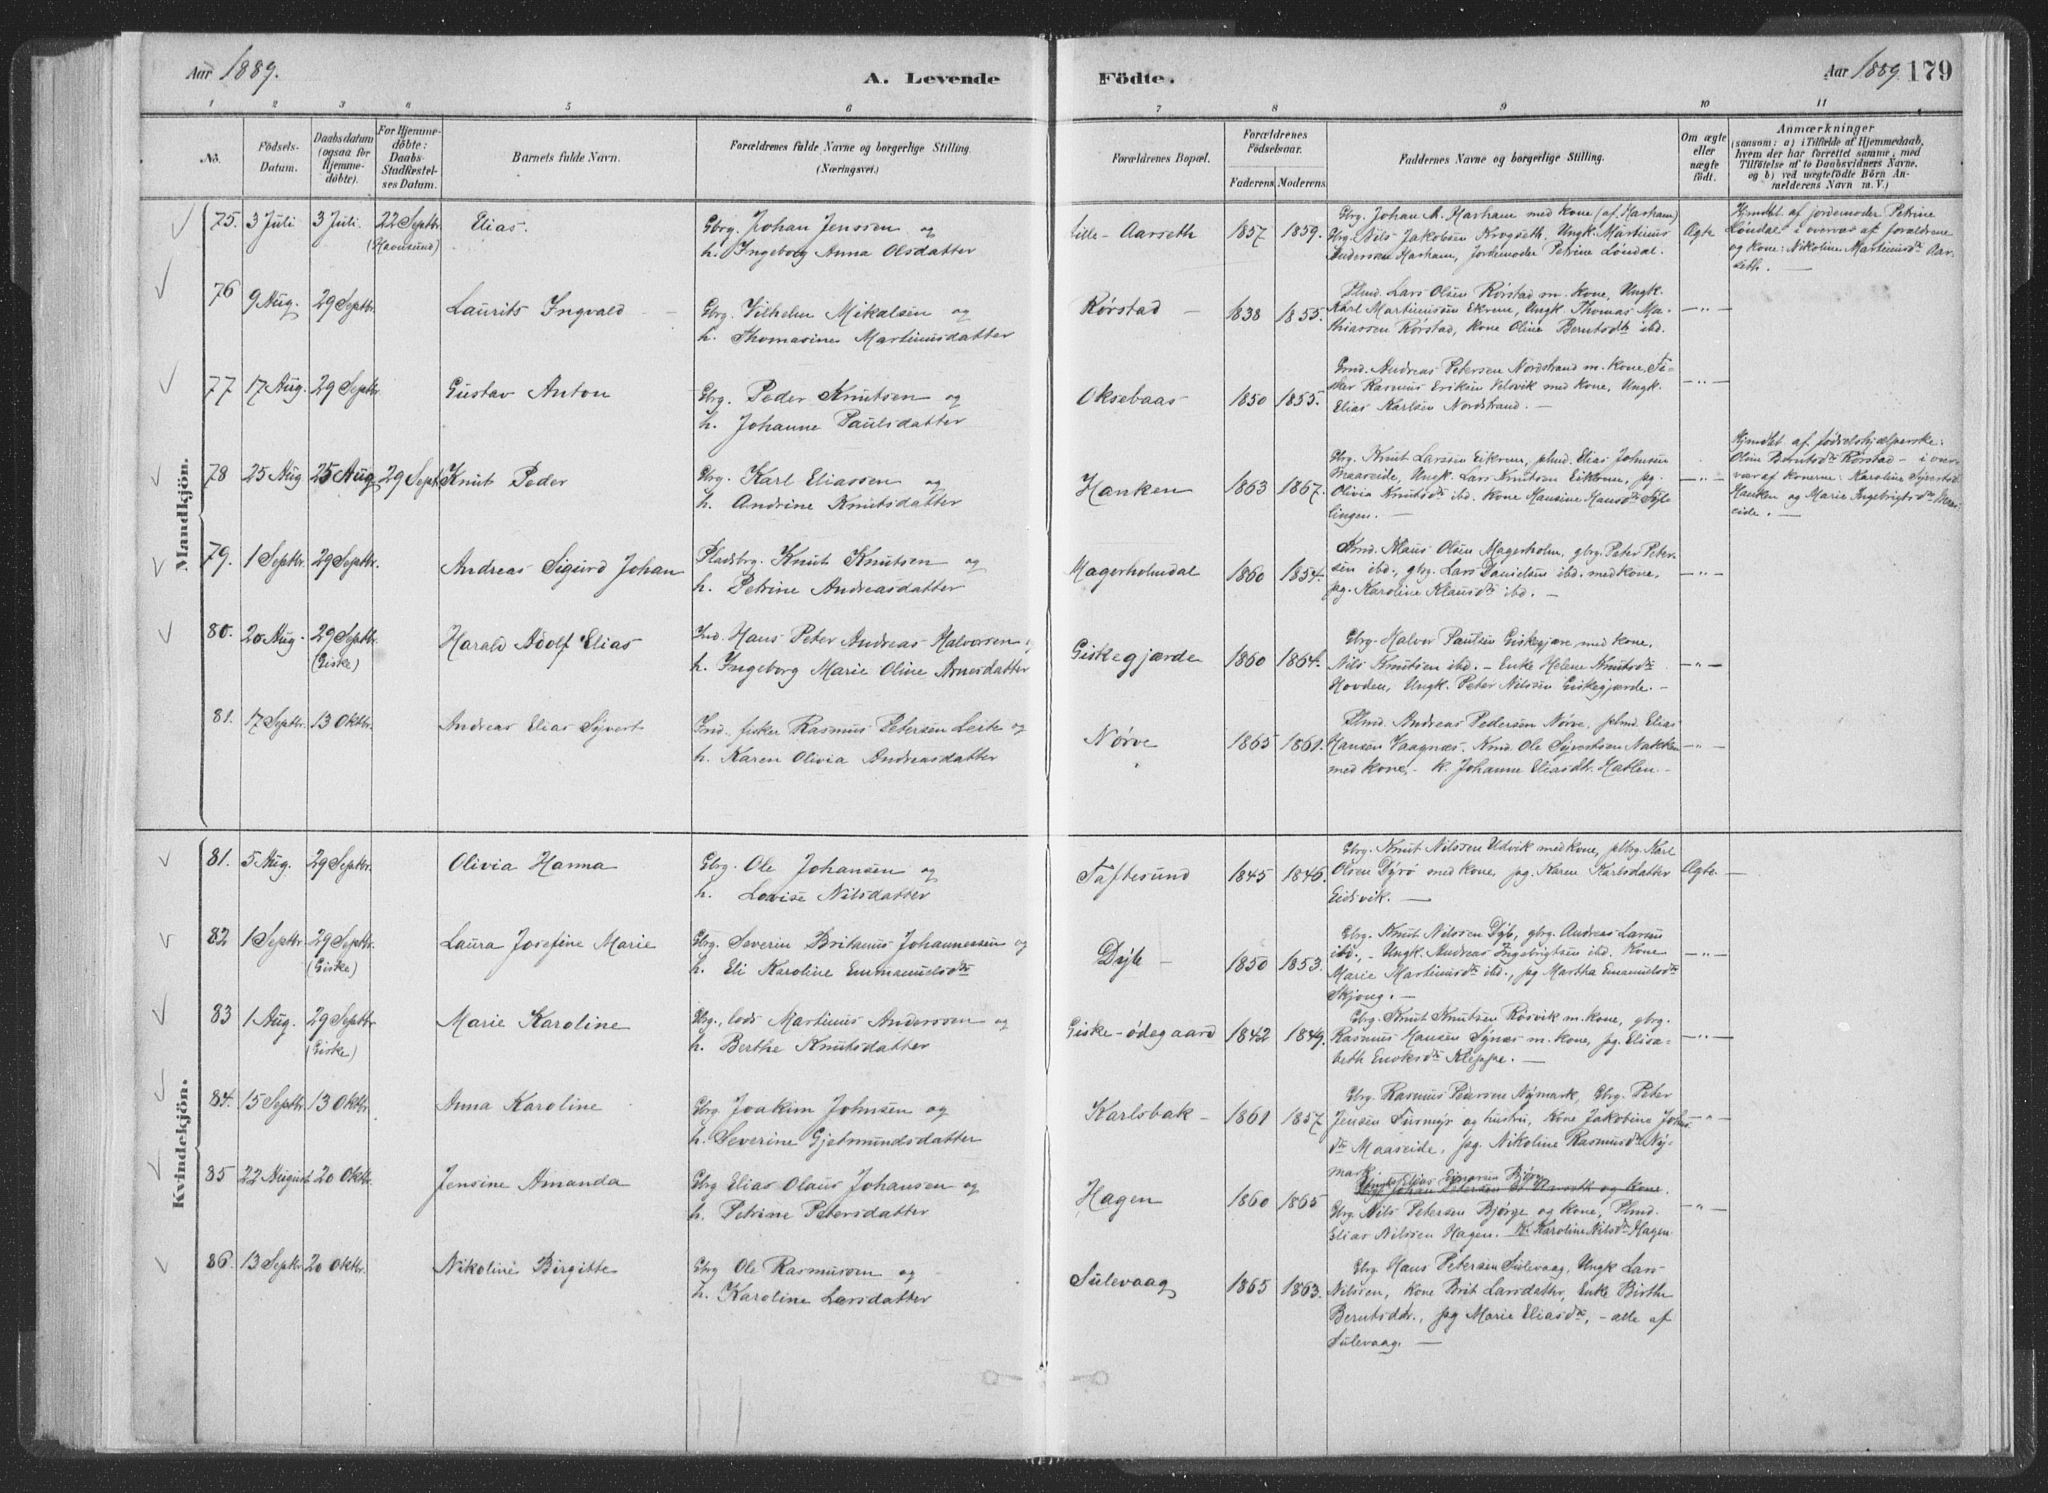 Aar 1889.
A. Levende
Födte.
Aar 1889
179
1 2 3 4 5 6 7 8 9 10 11
No.
Födsels-
Datum.
Daabsdatum
(ogsaa for
Hjemme-
döbte).
For Hjemme-
döbte:
Daabs-
Stadfæstel-
ses Datum.
Barnets fulde Navn.
Forældrenes fulde Navne og borgerlige Stilling.
(Næringsvei.)
Forældrenes Bopæl.
Forældrenes
Födselsaar.
Faderens Moderens
Faddernes Navne og borgerlige Stilling.
Om ægte
eller
uægte
födt.
Anmærkninger
(saasom: a) i Tilfælde af Hjemmedaab,
hvem der har forrettet samme, med
Tilföielse af to Daabsvidners Navne,
og b) ved uægtefödte Börn An-
mælderens Navn m. V.)
Mandkjön.
75. 3 Juli 3 Juli. 22 Septbr. Elias.
Gbrg. Johan Jenssen og
h. Ingeborg Anna Olsdatter
Lille-Aarseth 1857 1859.
Gbrg. Johan A. Harham med kone (af Harham)
Gbrg. Nils Jakobsen Krogseth, Ungk. Martinus
Anderssen Harham, Jordemoder Petrine Löndal.
Ægte
Hjmdbt af jordemoder Petrine
Löndal i overvær af forældrene
og kone: Nikoline Martinusdr. Aar-
seth. —
76 9 Aug. 29 Septbr. Laurits Ingvald
Gbrg. Vilhelm Mikalsen og
h. Thomasine Martinusdatter
Rörstad 1838 1855.
Plmd. Lars Olsen Rörstad m. kone, Ungk.
Karl Martinusen Ekrem, Ungk Thomas Ma-
thiassen Rörstad, kone Oline Berntsdtr ibd.
—"—
77 17 Aug. 29 Septbr. Gustav Anton
Gbrg. Peder Knutsen og
h. Johanne Paulsdatter
Oksebaas 1850 1855.
Gmd. Andreas Petersen Nordstrand m. kone, Fi-
sker Rasmus Eriksen Velsvik med kone, Ungk.
Elias Karlsen Nordstrand. —
—"—
78 25 Aug 25 Aug 29 Sept. Knut Peder
Gbrg. Karl Eliassen og
h. Andrine Knutsdatter
Hanken 1863 1867.
Gbrg. Knut Larssen Eikrem, plmd. Elias Johnsen
Maaseide, Ungk. Lars Knutsen Eikrem, pg.
Olivia Knutsdtr ibd. kone Hansine Hansdtr
lingen. —
—"—
Hjmdbt af födselshjælperske:
Oline Berntsdtr Rörstad – i over-
vær af konerne: Karoline Sivertsd.
Hanken og Marie Ingebrigtsdtr Maas-
eide. —
79. 1 Septbr. 29 Septbr. Andreas Sigurd Johan
Pladsbrg. Knut Knutsen og
h. Petrine Andreasdatter
Magerholmdal 1860 1854.
Kmd. Klaus Olsen Magerholm, gbrg. Peter Peter-
sen ibd., gbrg. Lars Danielsen ibd. med kone,
pg. Karoline Klausdtr ibd. —
—"—
80. 20 Aug. 29 Septbr. (Giske) Harald Adolf Elias
Ind. Hans Peter Andreas Halvorsen og
h. Ingeborg Marie Oline Arnesdatter
Giskegjærde 1860 1864.
Gbrg. Halvor Paulsen Giskegjære med kone,
Nils Knutsen ibd. – Enke Helene Knutsdtr
Hovden, Ungk. Peter Nilssen Giskegjærde. –
—"—
81. 17 Septbr. 13 Oktbr. Andreas Elias Sivert
Ind. fisker Rasmus Petersen Leite og
h. Karen Olivia Andreasdatter
Nörve 1865 1861.
Plmd. Andreas Pedersen Nörve, plmd. Elias
Hansen Vaagnæs. Kmd. Ole Sivertsen Nakken
med kone, – k. Johanne Eliasdtr. Hatlen. –
—"—
Kvindekjön.
81. 5 Aug. 29 Septbr. Olivia Hanna
Gbrg. Ole Johansen og
h. Lovise Nilsdatter
Taftesund 1845 1846.
Gbrg. Knut Nilssen Udvik med kone, plbg. Karl
Olsen Dyrö med kone, pg. Karen Karlsdatter
Eidsvik. —
Ægte —
82 1 Septbr. 29 Septbr. (Giske) Laura Josefine Marie
Gbrg. Severin Britanus Johannessen og
h. Eli Karoline Emmanuelsdtr
Dyb – 1850 1853.
Gbrg. Knut Nilssen Dyb, gbrg. Andreas Larsen
ibd., – Ungk. Andreas Ingebrigtsen ibd. Kone
Marie Martinusdtr ibd., pg Martha Emanuelsdtr
Skjong. —
—"—
83 1 Aug. 29 Septbr. (Giske) Marie Karoline
Gbrg., lods Martinus Anderssen og
h. Berthe Knutsdatter
Giske-ödegaard 1842 1849.
Gbrg. Knut Knutsen Rösvik m. kone, gbrg.
Rasmus Hansen Synæs m. kone, pg. Elisa-
beth Enoksdtr Kleppe. —
—"—
84. 15 Septbr. 13 Oktbr. Anna Karoline
Gbrg Joakim Johnsen og
h. Severine Gjetmundsdatter
Karlsbak – 1861 1857.
Gbrg. Rasmus Pedersen Nymark, Gbrg. Peter
Jensen Furmyr og hustru, kone Jakobine Johns-
dtr Maaseide, pg. Nikoline Rasmusdtr Ny-
mark.
—"—
85 22 August 20 Oktbr. Jensine Amanda
Gbrg Elias Olaus Johansen og
h. Petrine Petersdatter
Hagen 1860 1865
Ungk. Elias Einarsen Björge
Gbrg. Nils Petersen Björge og kone, Plmd.
Elias Nilssen Hagen. K. Karoline Nilsdtr Hagen.
—"—
86. 13 Septbr. 20 Oktbr. Nikoline Birgitte
Gbrg Ole Rasmussen og
h. Karoline Larsdatter
Sulevaag 1865 1863.
Gbrg Hans Petersen Sulevaag, Ungk Lars
Nilssen, kone Brit Larsdatter, Enke Birthe
Berntsdtr., pg Marie Eliasdtr, – alle af
Sulevaag. —